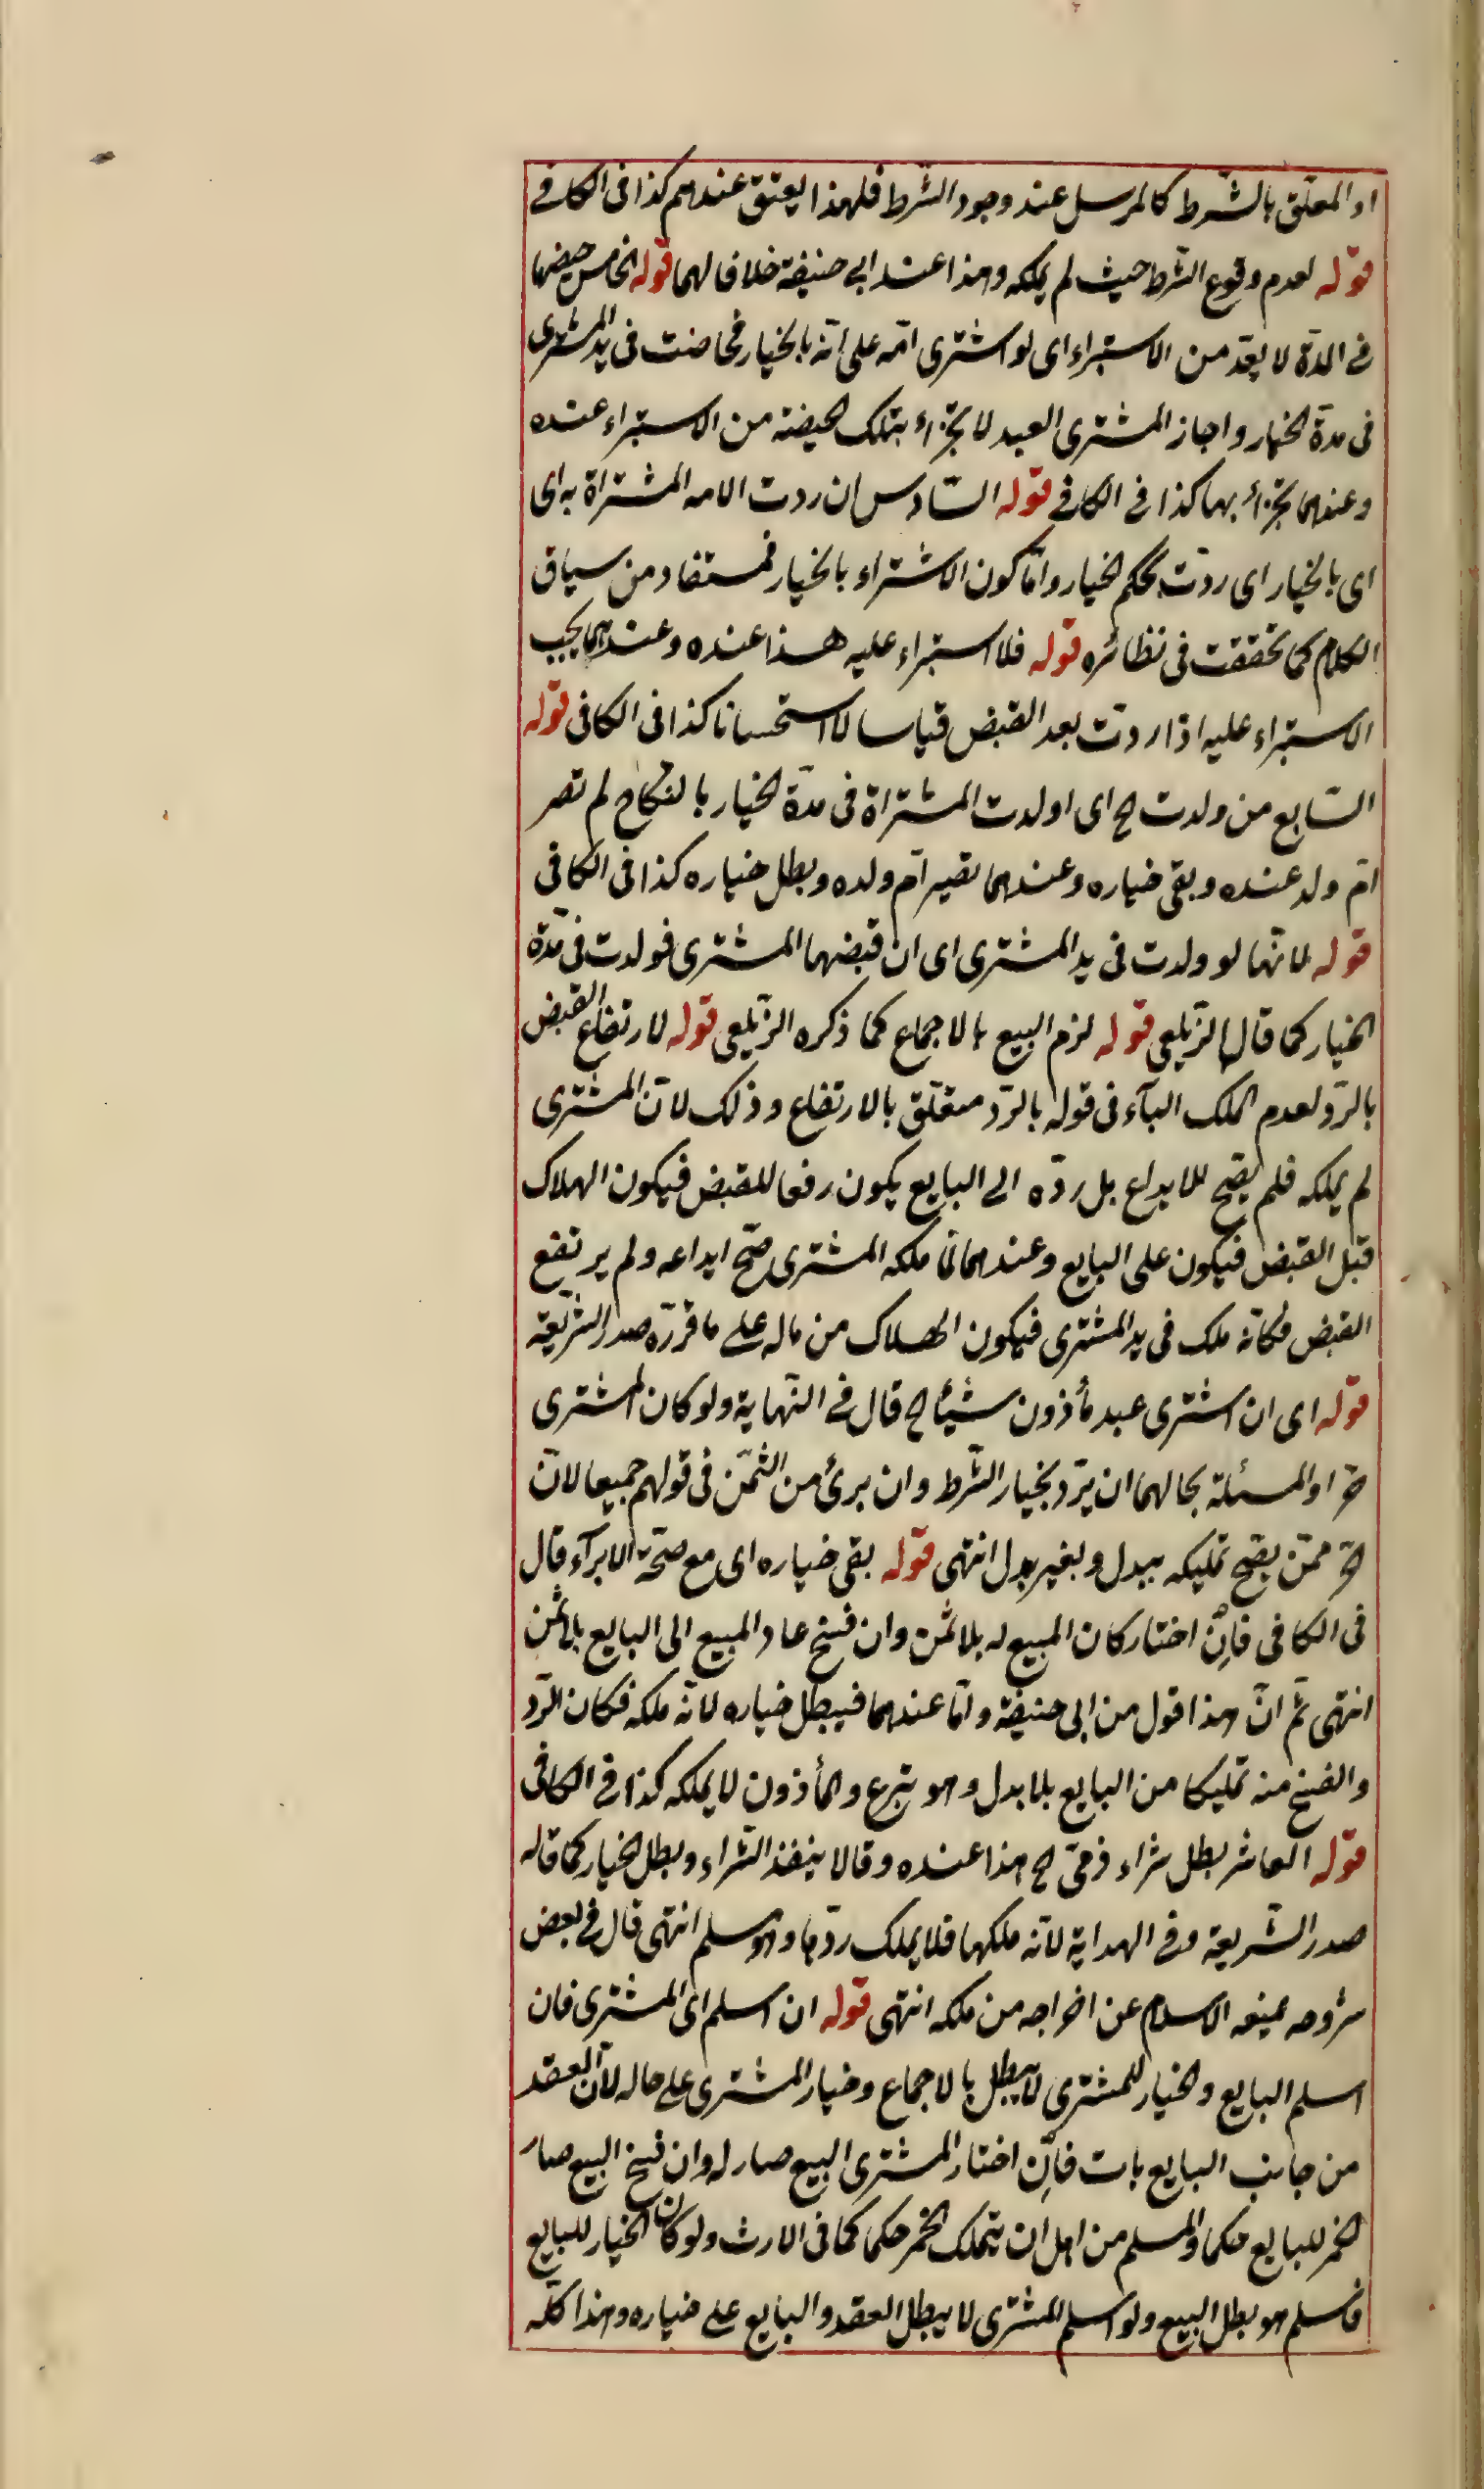 اذ المعلّق بالشّرط كالمرسل عند وجود الشّرط فلهذا يعتق عندهم كذا في الكافي
قوله لعدم وقوع الشّرط حيث لم يملكه وهذا عند ابي حنيفة خلافا لهما قوله الخامس حيضها
في المدّة لا يعدّ من الاستبراء اى لو اشترى امة على انّه بالخيار فحاضت في يد المشترى
في مدّة الخيار واجاز المشترى العبد لا تجزاء بتلك الحيضة من الاستبراء عنده
وعندهما تجزأ بها كذا في الكافي قوله السّادس ان ردت الامه المشتراة به اى
اى بالخيار اى ردّت بحكم الخيار وامّا كون الاشتراء بالخيار فمستفاد من سياق
الكلام كما تحققت في نظائره قوله فلا استبراء عليه هذا عنده وعندهما يجب
الاستبراء عليه اذا ردّت بعد القبض قياسا لا استحسانا كذا في الكافي قوله
السّابع من ولدت الخ اى اولدت المشتراة في مدّة الخيار بالنكاح لم تصر
امّ ولد عنده وبقى خياره وعندهما تصير امّ ولده وبطل خياره كذا في الكافي
قوله لانّها لو ولدت في يد المشترى اى ان قبضها المشترى فولدت في مدّة
الخيار كما قال الزّيلعي قوله لزم البيع بالاجماع كما ذكره الزّيلعي قوله لارتفاع القبض
بالرّد لعدم الملك الباء في قوله بالرّد متعلّق بالارتفاع وذلك لانّ المشترى
لم يملكه فلم يصحّ للابداع بل ردّه الى البايع يكون رفعا للقبض فيكون الهلاك
قبل القبض فيكون على البايع وعندهما لمّا ملكه المشترى صحّ ايداعه ولم يرتفع
القبض فكانّه ملك في يد المشترى فيكون الهلاك من ماله على ما قرّره صدر الشّريعة
قوله اى ان اشترى عبد مأذون شيئا الخ قال في النّهاية ولو كان المشترى
حرّا والمسئلة بحالها ان يردّ بخيار الشّرط وان برئ من الثّمن في قولهم جميعا لانّ
حرّ ممّن يصحّ تمليكه ببدل وبغير بدل انتهى قوله بقى خياره اى مع صحّة الابراء قال
في الكافي فانّ اختار كان المبيع له بلا ثمن وان فسخ عاد المبيع الى البايع بلا ثمن
انتهى ثمّ انّ هذا قول من ابي حنيفة وامّا عندهما فيبطل خياره لانّه ملكه فكان الرّد
والفسخ منه تمليكا من البايع بلا بدل وهو تبرع والمأذون لا يملكه كذا في الكافي
قوله العاشر بطل شراء ذمّى الخ هذا عنده وقالا ينفذ الشّراء وبطل الخيار كما قاله
صدر الشّريعة وفي الهداية لانّه ملكها فلا يملك ردّها وهو مسلم انتهى قال في بعض
شروحه يمنعه الاسلام عن اخراجه من ملكه انتهى قوله ان اسلم اى المشترى فان
اسلم البايع والخيار للمشترى لا يبطل بالاجماع وخيار المشترى على حاله لانّ العقد
من جانب البايع بات فانّ اختار المشترى البيع صار له وان فسخ البيع صار
الخمر للبايع حكما والمسلم من اهل ان يتملك الخمر حكما كما في الارث ولو كان الخيار للبايع
فاسلم هو بطل البيع ولو اسلم المشترى لا يبطل العقد والبايع على خياره وهذا كلّه